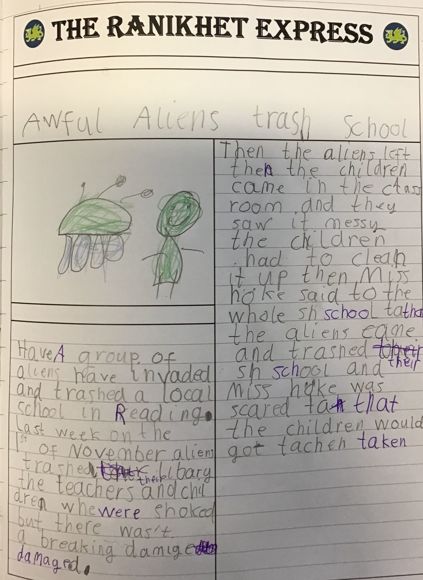 THE RANIKHET EXPRESS
Awful Aliens trash School
Have A group of
aliens have invaded
and trashed a local
school in Reading.
Last week on the
1st of November alien
trashed their libary
the teachers and chil
aren whe were shoked
but there was't
a breaking damige
damaged.
Then the aliens left
then the children
came in the class
room and they
saw it messy
the children
had to clean
it up then Miss
hoke said to the
whole sh school ta that
the aliens came
and trashed their
sh school and their
miss hoke was
scared ta that
the children would
got tachen taken